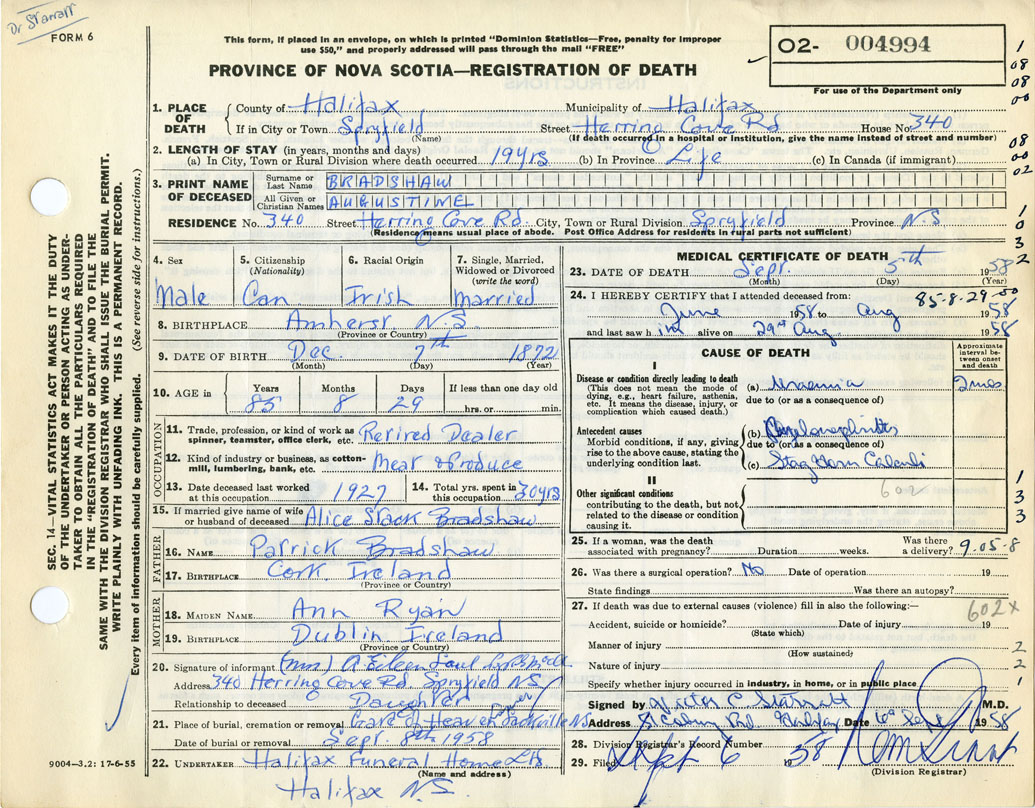 Dr Starratt
FORM 6
This form, if placed in an envelope, on which is printed "Dominion Statistics—Free, penalty for improper
use $50," and properly addressed will pass through the mail "FREE"
PROVINCE OF NOVA SCOTIA—REGISTRATION OF DEATH
02- 004994
For use of the Department only
1
08
08
00
1. PLACE OF DEATH
County of Halifax Municipality of Halifax
If in City or Town Spryfield Street Herring Cove Rd House No. 340
(Name) (If death occurred in a hospital or institution, give the name instead of street and number)
08
00
02
2. LENGTH OF STAY (in years, months and days)
(a) In City, Town or Rural Division where death occurred 19 yrs (b) In Province Life (c) In Canada (if immigrant)
3. PRINT NAME OF DECEASED
Surname or Last Name BRADSHAW
All Given or Christian Names AUGUSTINE
RESIDENCE No. 340 Street Herring Cove Rd. City, Town or Rural Division Spryfield Province NS
(Residence means usual place of abode. Post Office Address for residents in rural parts not sufficient)
1
0
3
2
4. Sex
Male
5. Citizenship
(Nationality)
Can
6. Racial Origin
Irish
7. Single, Married, Widowed or Divorced
(write the word)
Married
8. BIRTHPLACE Amherst N.S.
(Province or Country)
9. DATE OF BIRTH Dec. 7th 1872
(Month) (Day) (Year)
10. AGE in
Years Months Days If less than one day old
85 8 29 hrs. or min.
OCCUPATION
11. Trade, profession, or kind of work as
spinner, teamster, office clerk, etc. Retired Dealer
12. Kind of industry or business, as cotton-
mill, lumbering, bank, etc. Meat & Produce
13. Date deceased last worked
at this occupation 1927
14. Total yrs. spent in
this occupation 30 yrs
15. If married give name of wife
or husband of deceased Alice Slack Bradshaw
FATHER
16. NAME Patrick Bradshaw
17. BIRTHPLACE Cork Ireland
(Province or Country)
MOTHER
18. MAIDEN NAME Ann Ryan
19. BIRTHPLACE Dublin Ireland
(Province or Country)
20. Signature of informant (Mrs) A Eileen
Address 340 Herring Cove Rd Spryfield NS
Relationship to deceased Daughter
21. Place of burial, cremation or removal Gate of Heaven Sackville NS
Date of burial or removal Sept. 8th 1958
22. UNDERTAKER Halifax Funeral Home Ltd
(Name and address)
Halifax N.S.
9004—3.2: 17-6-55
MEDICAL CERTIFICATE OF DEATH
23. DATE OF DEATH Sept. 5th 1958
(Month) (Day) (Year)
24. I HEREBY CERTIFY that I attended deceased from: 85-8-29-50
June 1958 to Aug 1958
and last saw him alive on 29th Aug 1958
CAUSE OF DEATH
Approximate interval between onset and death
I
Disease or condition directly leading to death
(This does not mean the mode of
dying, e.g., heart failure, asthenia,
etc. It means the disease, injury, or
complication which caused death.)
(a) Uraemia 2 mos
due to (or as a consequence of)
Antecedent causes
Morbid conditions, if any, giving
rise to the above cause, stating the
underlying condition last.
(b) Pyelonephritis
due to (or as a consequence of)
(c) Stag Horn Calculi
II
Other significant conditions
contributing to the death, but not
related to the disease or condition
causing it.
602
1
3
3
25. If a woman, was the death
associated with pregnancy? Duration weeks. Was there a delivery? 9-05-8
26. Was there a surgical operation? No Date of operation 19
State findings Was there an autopsy?
27. If death was due to external causes (violence) fill in also the following:—
602x
Accident, suicide or homicide? Date of injury 19
(State which)
Manner of injury
(How sustained)
2
Nature of injury
2
Specify whether injury occurred in industry, in home, or in public place
1
Signed by Victor C Starratt M.D.
Address Halifax Date 6th Sept 1958
28. Division Registrar's Record Number
29. Filed Sept 6 1958
(Division Registrar)
SEC. 14—VITAL STATISTICS ACT MAKES IT THE DUTY
OF THE UNDERTAKER OR PERSON ACTING AS UNDER-
TAKER TO OBTAIN ALL THE PARTICULARS REQUIRED
IN THE "REGISTRATION OF DEATH" AND TO FILE THE
SAME WITH THE DIVISION REGISTRAR WHO SHALL ISSUE THE BURIAL PERMIT.
WRITE PLAINLY WITH UNFADING INK. THIS IS A PERMANENT RECORD.
Every item of information should be carefully supplied. (See reverse side for instructions.)